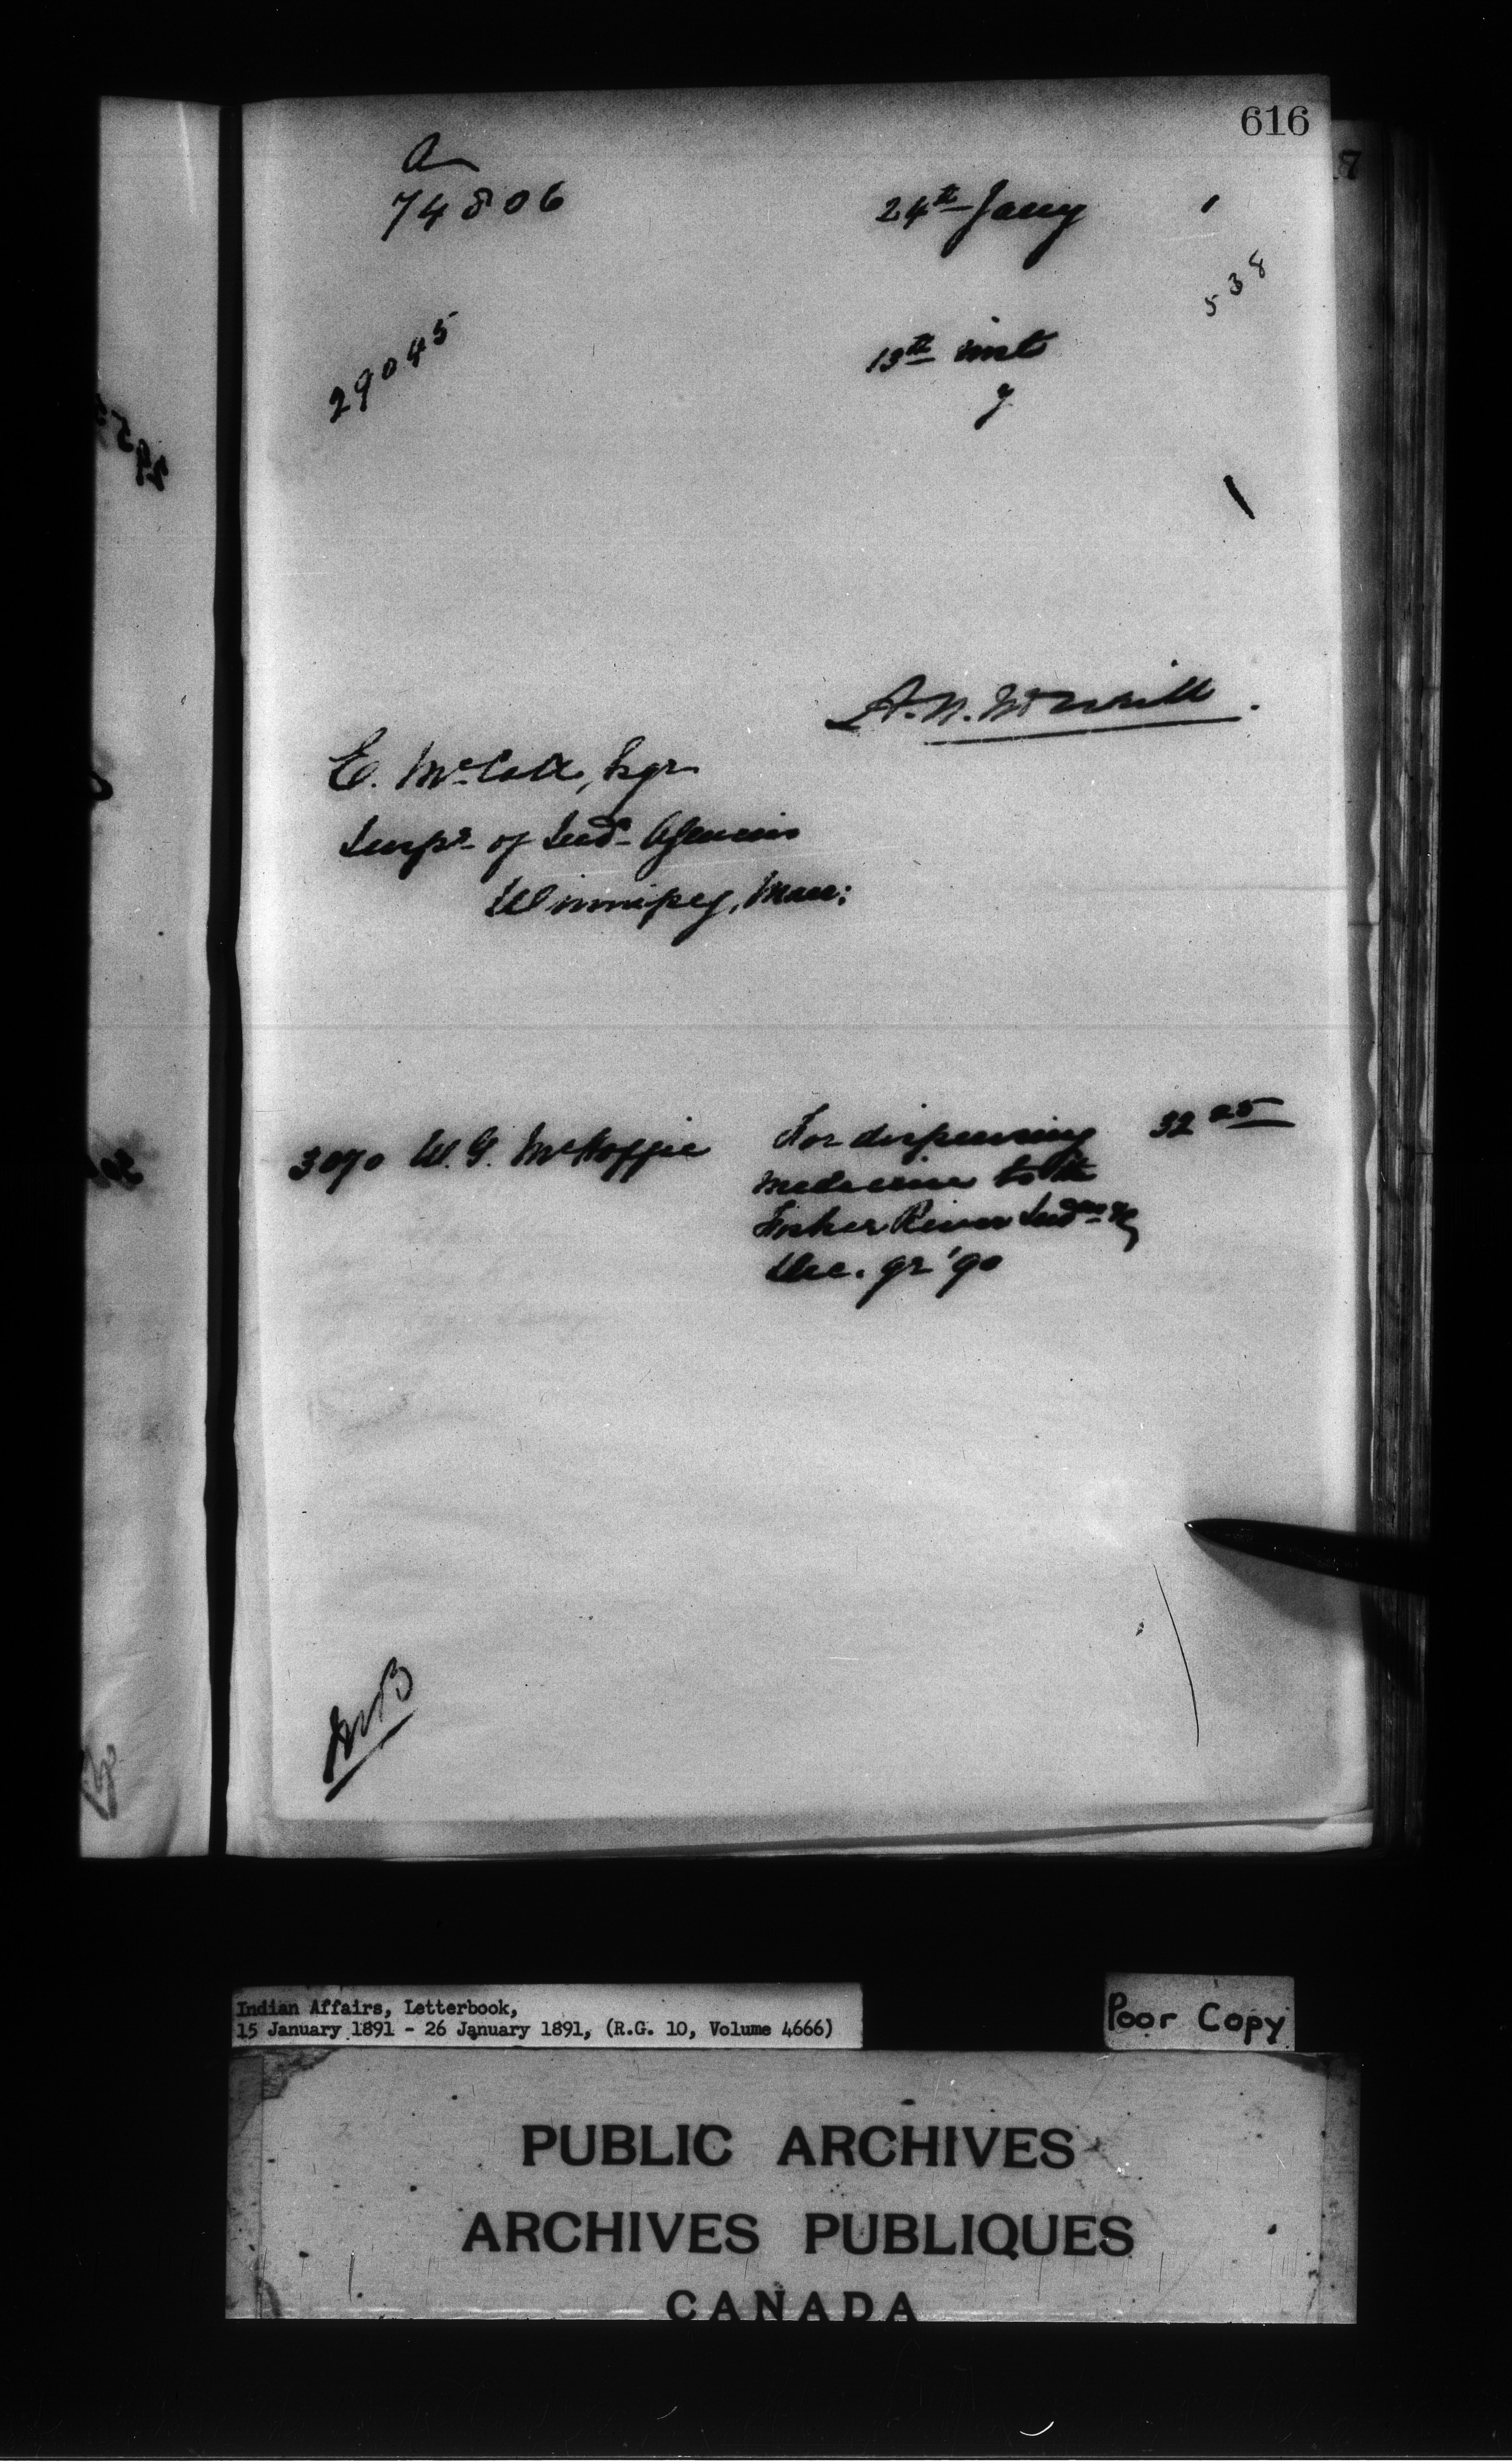 616
a
74806
24th Jany 1
538
29045
13th inst
y
A. N. McNeill.
E. McColl, Esqr
Inspr of Ind Agencies
Winnipeg, Man:
3070 W. G. McHaffie For dispensing 32 25
medicine to the
Fisher River Inds
Dec. qr '90
Indian Affairs, Letterbook,
15 January 1891 - 26 January 1891, (R.G. 10, Volume 4666)
Poor Copy
PUBLIC ARCHIVES
ARCHIVES PUBLIQUES
CANADA